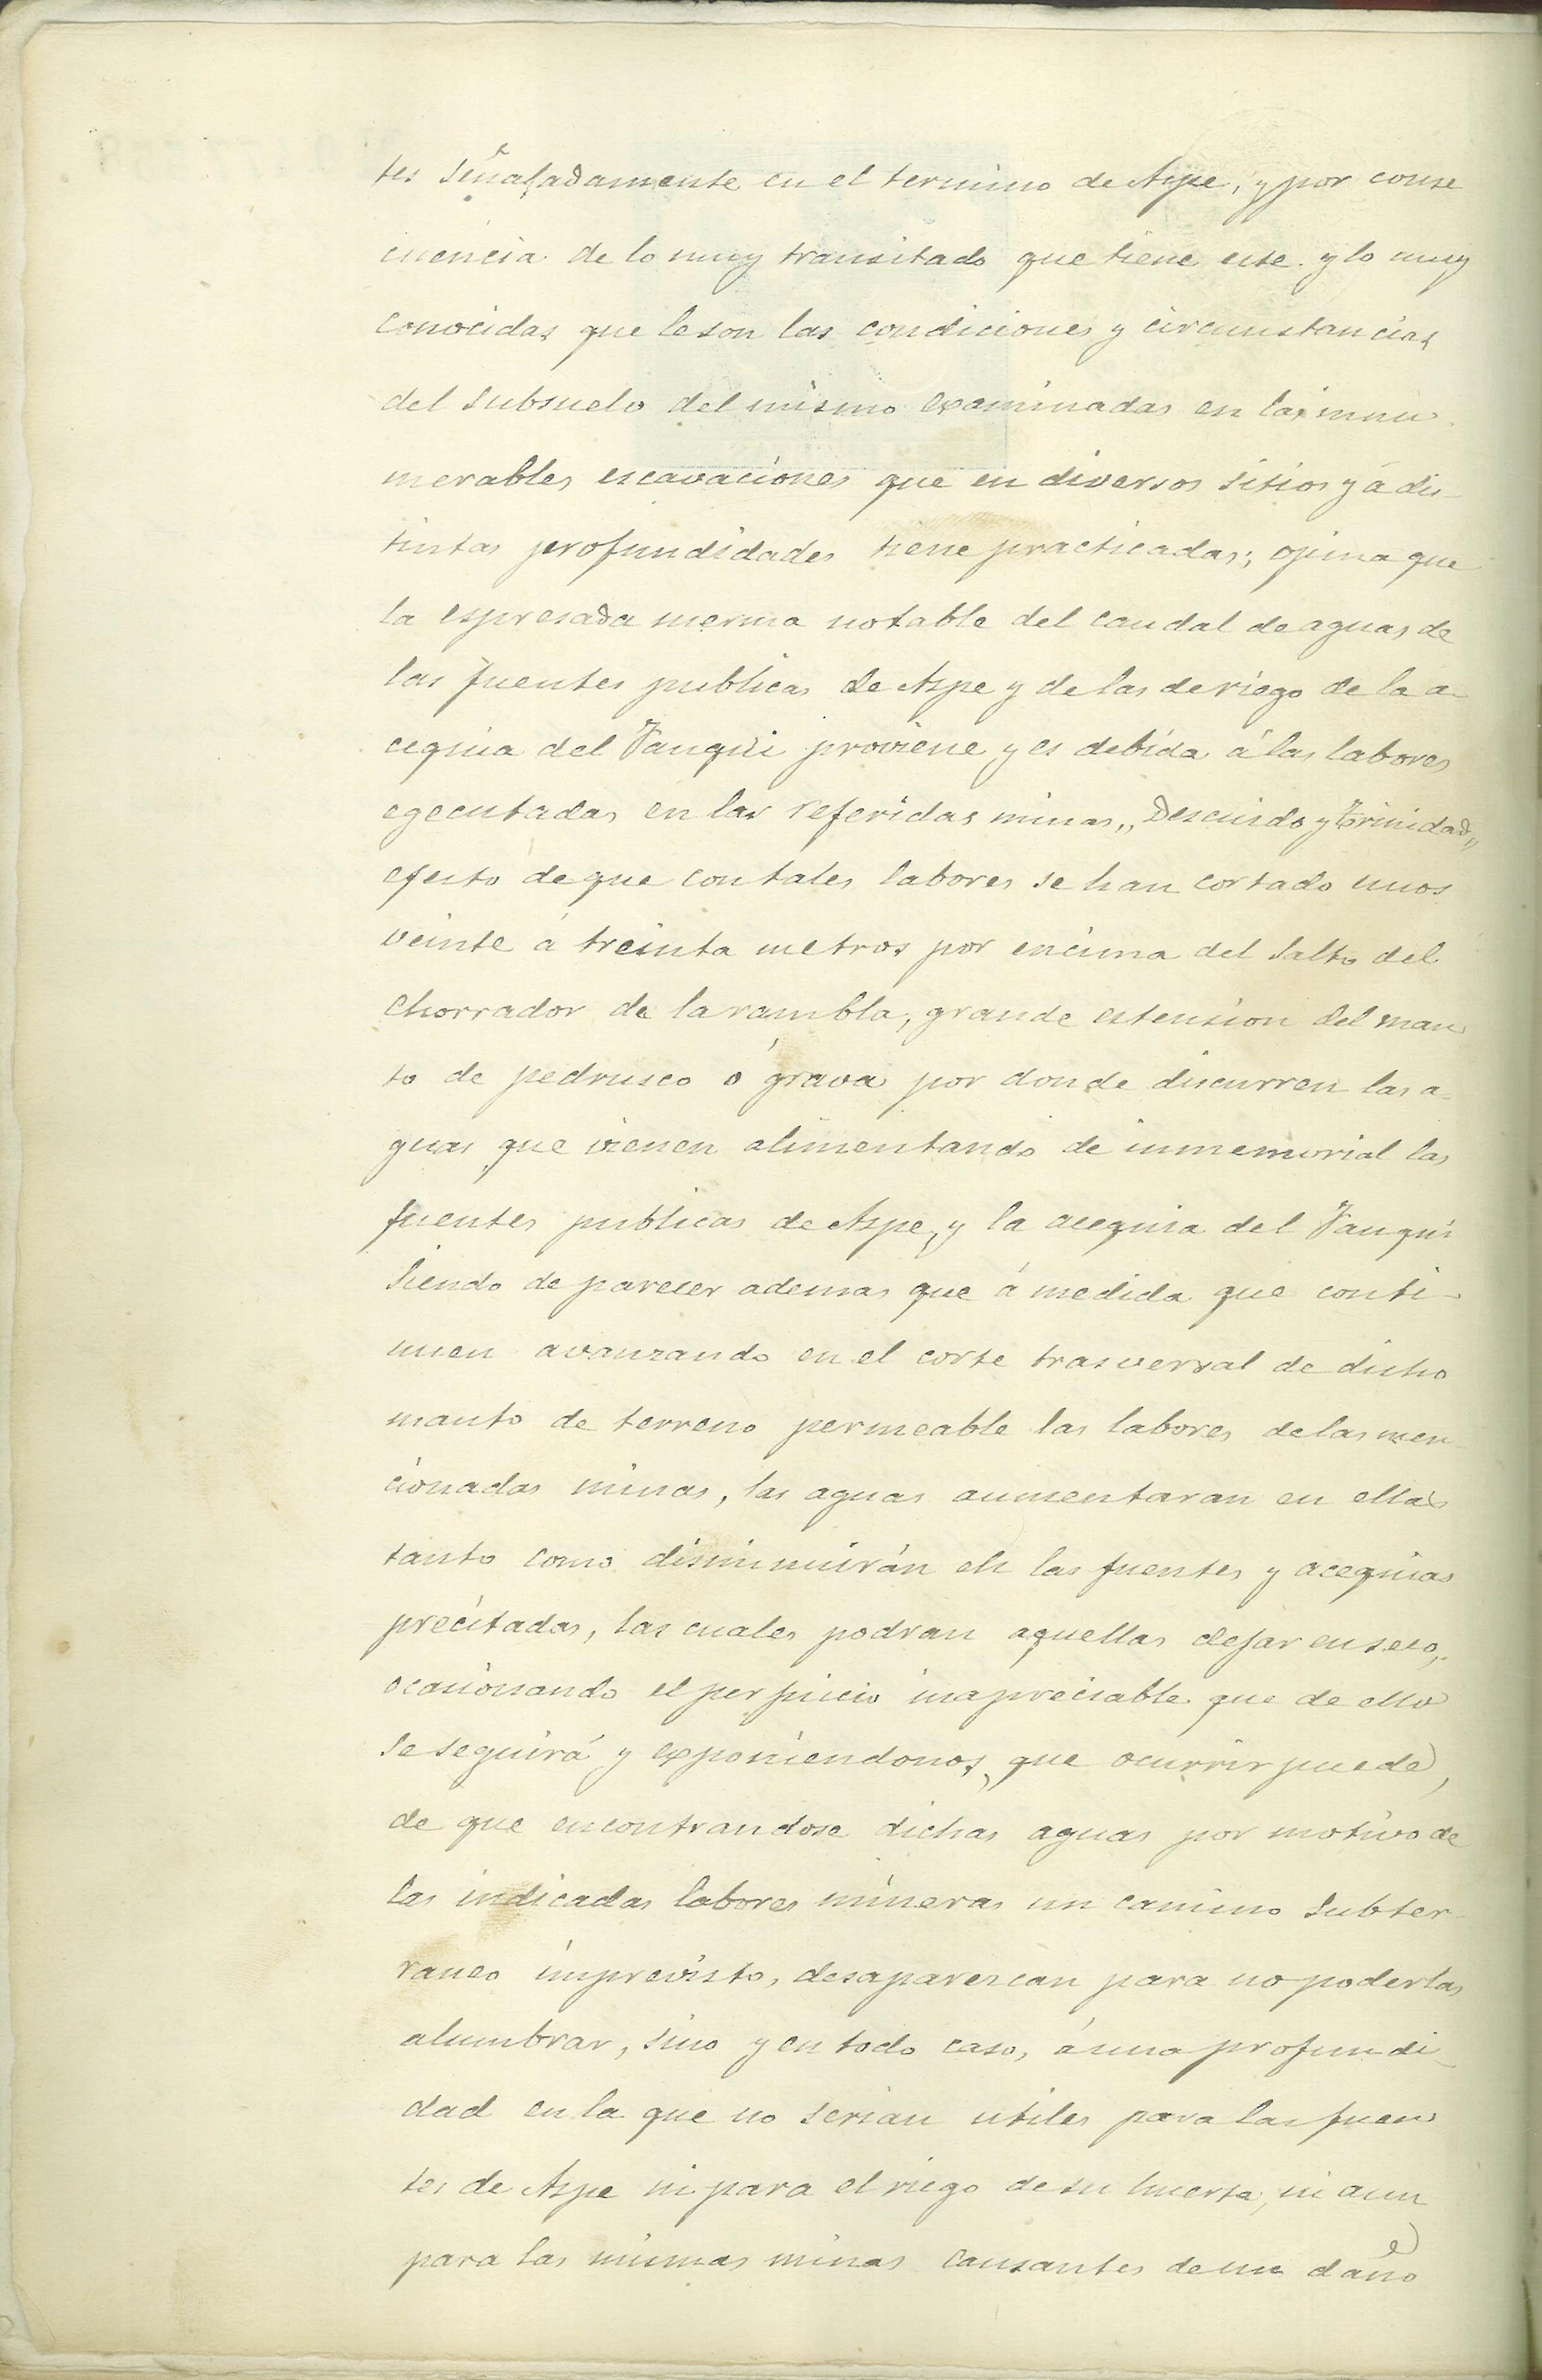 tes señaladamente en el termino de Aspe, y por conse
cuencia de lo muy transitado que tiene este. y lo muy
conocidas que le son las condiciones y circunstancias
del subsuelo del mismo examinadas en las innu
merables escavaciones que en diversos sitios y á dis-
tintas profundidades tiene practicadas; opina que
la espresada merma notable del caudal de aguas de
las fuentes publicas de Aspe y de las de riego de la a-
cequia del Fauqui proviene y es debida á las labores
egecutadas en las referidas minas „Descuido y Trinidad„
efecto de que con tales labores se han cortado unos
veinte á treinta metros por encima del salto del
Chorrador de la rambla, grande estension del man
to de pedrusco ó grava por donde discurren las a-
guas que vienen alimentando de inmemorial las
fuentes publicas de Aspe, y la acequia del Fauqui
siendo de parecer ademas que á medida que conti-
nuen avanzando en el corte trasversal de dicho
manto de terreno permeable las labores de las men-
cionadas minas, las aguas aumentaran en ellas
tanto como disminuirán en las fuentes y acequias
precitadas, las cuales podran aquellas dejar en seco,
ocasionando el perjuicio inapreciable que de ello
se seguirá y exponiendonos, que ocurrir puede,
de que encontrandose dichas aguas por motivo de
las indicadas labores mineras un camino subter-
raneo imprevisto, desaparezcan para no poderlas
alumbrar, sino y en todo caso, á una profundi-
dad en la que no serian utiles para las fuen
tes de Aspe ni para el riego de su huerta, ni aun
para las mismas minas causantes de un daño